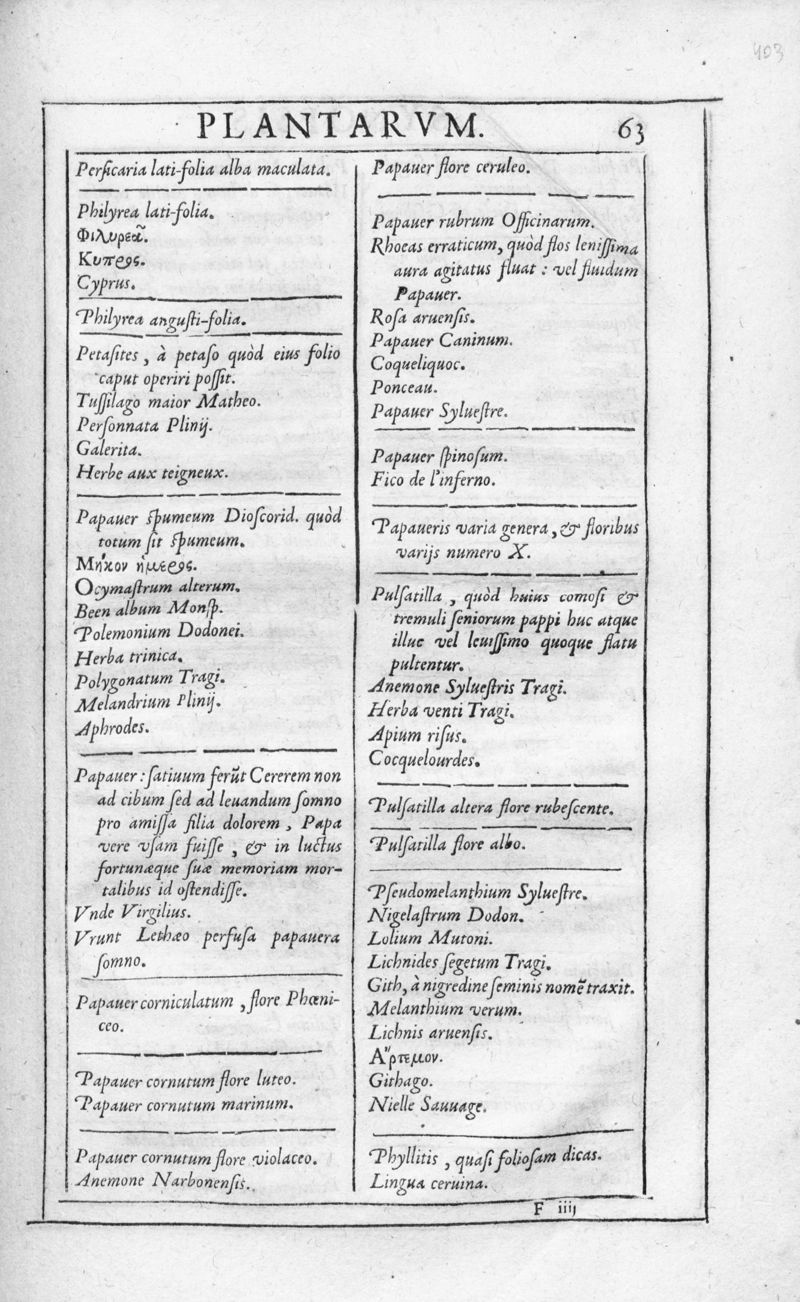 403
PLANTARVM. 63
Persicaria lati-folia alba maculata.
Philyrea lati-folia.
Φιλυρεα῀.
Κυπερς.
Cyprus.
Philyrea angusti-folia.
Petasites, à petaso quòd eius folio
caput operiri possit.
Tussilago maior Matheo.
Personnata Plinij.
Galerita.
Herbe aux teigneux.
Papauer spumeum Dioscorid. quòd
totum sit spumeum.
Μήκον ἡμεερς.
Ocymastrum alterum.
Been album Monsp.
Polemonium Dodonei.
Herba trinica.
Polygonatum Tragi.
Melandrium Plinij.
Aphrodes.
Papauer : satiuum ferũt Cererem non
ad cibum sed ad leuandum somno
pro amissa filia dolorem, Papa
vere vsam fuisse, & in luctus
fortunæque suæ memoriam mor-
talibus id ostendisse.
Vnde Virgilius.
Vrunt Lethæo perfusa papauera
somno.
Papauer corniculatum, flore Phœni-
ceo.
Papauer cornutum flore luteo.
Papauer cornutum marinum.
Papauer cornutum flore violaceo.
Anemone Narbonensis.
Papauer flore ceruleo.
Papauer rubrum Officinarum.
Rhoeas erraticum, quòd flos lenissima
aura agitatus fluat : vel fluidum
Papauer.
Rosa aruensis.
Papauer Caninum.
Coqueliquoc.
Ponceau.
Papauer Syluestre.
Papauer spinosum.
Fico de l'inferno.
Papaueris varia genera, & floribus
varijs numero X.
Pulsatilla, quòd huius comosi &
tremuli seniorum pappi huc atque
illuc vel leuissimo quoque flatu
pultentur.
Anemone Syluestris Tragi.
Herba venti Tragi.
Apium risus.
Cocquelourdes.
Pulsatilla altera flore rubescente.
Pulsatilla flore albo.
Pseudomelanthium Syluestre.
Nigelastrum Dodon.
Lolium Mutoni.
Lichnides segetum Tragi.
Gith, à nigredine seminis nomẽ traxit.
Melanthium verum.
Lichnis aruensis.
Ἄρτεμον.
Githago.
Nielle Sauuage.
Phyllitis, quasi foliosam dicas.
Lingua ceruina.
F iiij